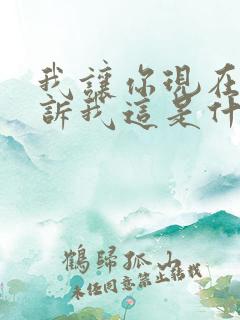 我讓你現在
訴我這是什
鶴歸孤山
未经同意禁止转载